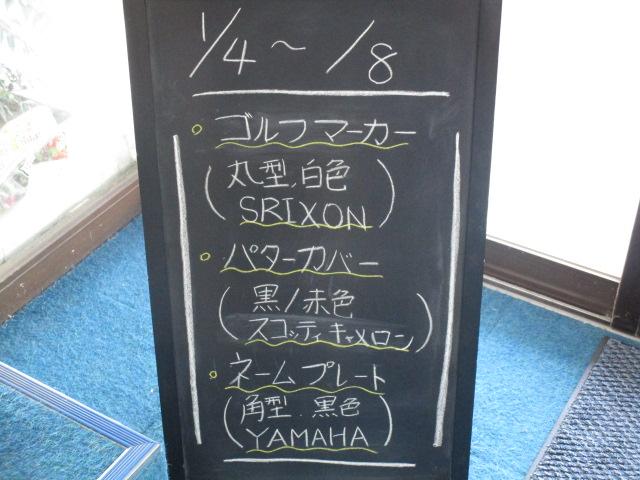 1/4～/8
○ ゴルフマーカー
(丸型、白色
SRIXON)
○ パターカバー
(黒/赤色
スコッティキャメロン)
○ ネームプレート
(角型、黒色
YAMAHA)